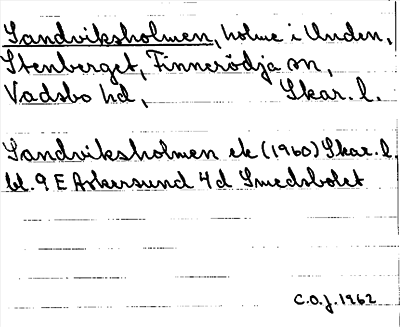 Sandviksholmen, holme i Unden,
Stenberget, Finnerödja sn,
Vadsbo hd, Skar. l.
Sandviksholmen ek (1960) Skar. l.
bl. 9 E Askersund 4d Smedsbolet
C.O.J. 1962